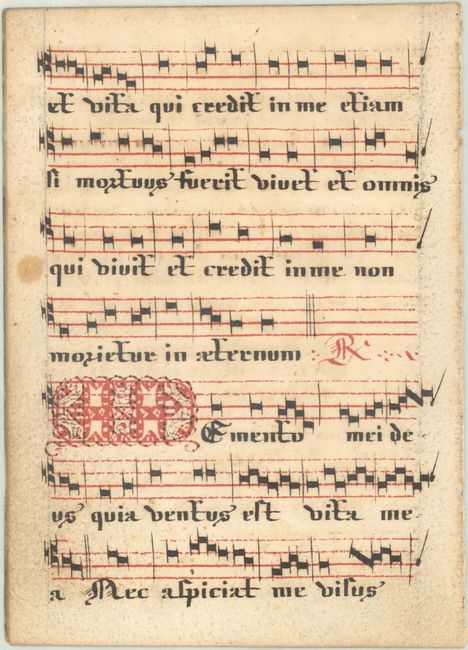 et vita qui credit in me etiam
si mortuus fuerit vivet et omnis
qui vivit et credit in me non
morietur in æternum R
Memento mei de-
us quia ventus est vita me-
a Nec aspiciat me visus